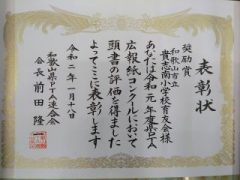 表彰状
奨励賞
和歌山市立
貴志南小学校育友会様
あなたは令和元年度県PTA
広報紙コンクールにおいて
頭書の評価を得ました
よってここに表彰します
令和二年一月十八日
和歌山県PTA連合会
会長 前田 隆